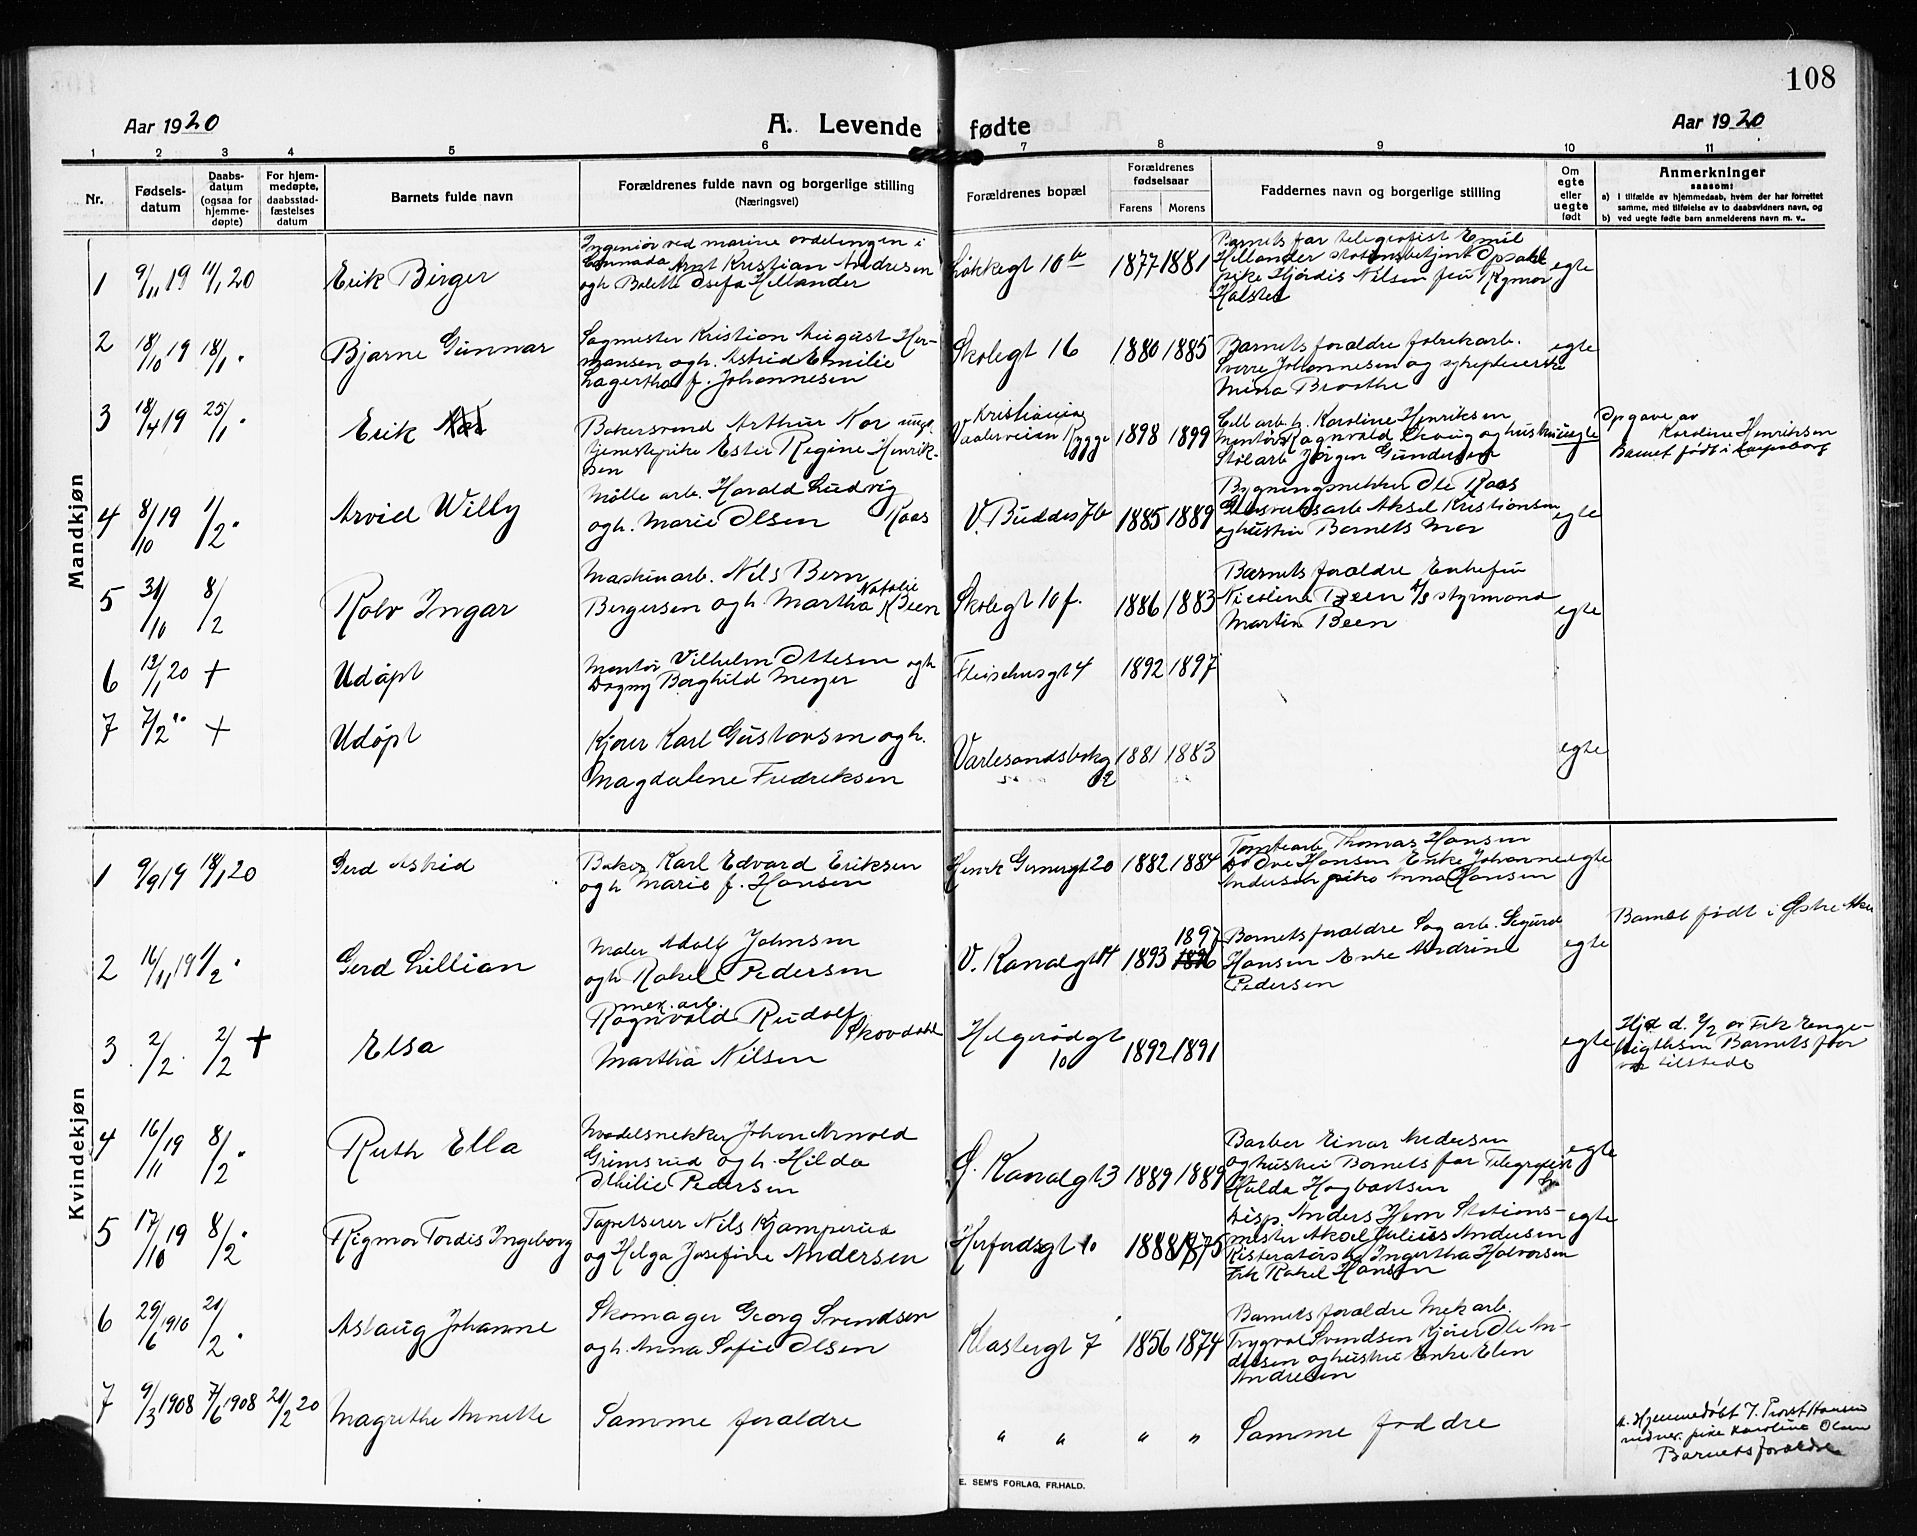 108
Aar 1920
A. Levende fødte
Aar 1920
1 2 3 4 5 6 7 8 9 10 11
Nr.
Fødsels-
datum
Daabs-
datum
(ogsaa for
hjemme-
døpte)
For hjem-
medøpte,
daabsstad-
fæstelses
datum
Barnets fulde navn
Forældrenes fulde navn og borgerlige stilling
(Næringsvei)
Forældrenes bopæl
Forældrenes
fødselsaar
Farens Morens
Faddernes navn og borgerlige stilling
Om
egte
eller
uegte
født
Anmerkninger
saasom:
a) I tilfælde av hjemmedaab, hvem der har forrettet
samme, med tilføielse av to daabsvidners navn, og
b) ved uegte fødte barn anmelderens navn m. v..
Mandkjøn
1 9/11 19 11/1 20 Erik Birger
Ingeniør ved marine avdelingen i
Cannada Arnt Kristian Andresen
og h. Bolette Josefa Hillander
Løkkegt 10 b 1877 1881
Barnets far telegrafist Emil
Hillander stationsbetjent Opsahl
pike Hjørdis Nilsen fru Rigmor
Halsted
egte
2 18/10 19 18/1 " Bjarne Gunnar
Sagmester Kristian August Her-
mansen og h. Astrid Emilie
Lagertha f. Johannesen
Skolegt 16 1880 1885
Barnets forældre fabrikarb.
Sverre Johannesen og sykepleierske
Minna Braathe
egte
3 18/4 19 25/1 " Erik
Bakersvend Arthur Nor ungk.
tjenestepike Ester Regine Henrik-
sen
Kristiania
Vaalerveien Rygge 1898 1899
Cell. arb. h. Karoline Henriksen
Montør Ragnvald Skaug og hustru
Stølarb Jørgen Gundersen
uegte
Opgave av
Karoline Henriksen
Barnet født i Sarpsborg
4 8/10 19 1/2 " Arvid Willy
Mølle arb. Harald Ludvig
Roos
og h. Marie Olsen
V. Buddes 7b 1885 1889
Bygningssnekker Ole Roos
Glasverksarb Aksel Kristiansen
og hustru Barnets Mor
egte
5 31/10 8/2 Rolv Ingar
Maskinarb. Nils Bern
Bergersen og h. Martha Natalie
K Been
Skolegt 10 f. 1886 1883
Barnets forældre Enkefru
Nicoline Been styrmand
Martin Been
egte
6 12/1 20 + Udøpt
Montør Vilhelm Ottesen og h
Dagny Borghild Meyer
Fleischesgt 4 1892 1897
7 7/2 " + Udøpt
Kjører Karl Gustavsen og h.
Magdalene Fredriksen
Varlesandsbakg
9 1881 1883
egte
Kvindekjøn
1 9/9 19 18/1 20 Gerd Astrid
Baker Karl Edvard Eriksen
og h Marie f. Hansen
Henrik Gernergt 20 1882 1884
Tomtearb Thomas Hansen
Do Ove Hansen Enke Johanne
Andersen pike Anna Hansen
egte
2 16/11 19 1/2 " Gerd Lillian
Maler Adolf Johnsen
og h Rakel Pedersen
V. Kanalgt 14 1893 1897
1896
Barnets forældre Sag arb. Sigurd
Hansen Enke Andrine
Pedersen
egte
Barnet født i Østre Aker
3 2/2 2/2 + Elsa
mek. arb.
Ragnvald Rudolf
Skovdahl
Martha Nilsen
Helgerødgt
10 1892 1891
egte
Hjd d. 2/2 av Frk Enge-
brigthsen Barnets far
var tilstede
4 16/11 19 8/2 " Ruth Ella
Modelsnekker Johan Arnold
Grimsrud og h. Hilda
Othilie Pedersen
Ø. Kanalgt 3 1889 1889
Barber Einar Andersen
og hustru Barnets far Telegrafist
Hulda Hagbartsen
egte
5 17/10 19 8/2 " Rigmor Tordis Ingeborg
Tapetserer Nils Kjamperud
og Helga Josefine Andersen
Herfordsgt 10 1888 1875
Disp. Anders Hem Stations-
mester Aksel Julius Andersen
Ingertha Halvorsen
Frk Rakel Hansen
egte
6 29/6 1910 21/2 " Aslaug Johanne
Skomager Georg Svendsen
og h. Anna Sofie Olsen
Klostergt 7 1856 1874
Barnets forældre Mek arb.
Trygve Svendsen Kjører Ole An-
dresen og hustru Enke Elen
Andresen
7 9/3 1908 7/6 1908 21/2 20 Magrethe Annette
Samme forældre
" " " "
Samme faddre
a. Hjemmedøbt 7. Prost Hansen
vidner. pike Karoline Olsen
Barnets forældre
E. SEM'S FORLAG, FR.HALD.